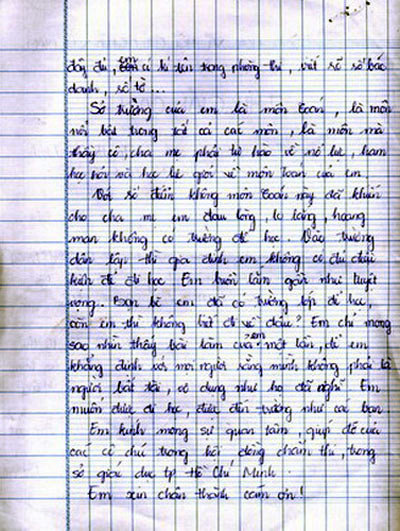 đầy đủ, em có kí tên trong phòng thi, viết rõ số báo
danh, số tờ...
Sở trường của em là môn toán, là môn
nổi bật trong tất cả các môn, là môn mà
thầy cô, cha mẹ phải tự hào về nó lực, ham
học hỏi và học hè giỏi về môn toán của em.
Với số điểm không môn toán này đã khiến
cho cha mẹ em đau lòng, lo lắng, hoang
mang không có trường để học. Vào trường
dân lập thì gia đình em không có đủ điều
kiện để đi học. Em buồn lắm gần như tuyệt
vọng. Bạn bè em đã có trường lớp để học,
còn em thì không biết đi về đâu? Em chỉ mong
sao nhìn thấy bài làm của em một lần, để em
khẳng định với mọi người rằng mình không phải là
người bất tài, vô dụng như họ đã nghĩ. Em
muốn được đi học, được đến trường như các bạn
Em kính mong sự quan tâm, giúp đỡ của
các cô chú trong hội đồng chấm thi, trong
sở giáo dục tp Hồ Chí Minh.
Em xin chân thành cảm ơn!